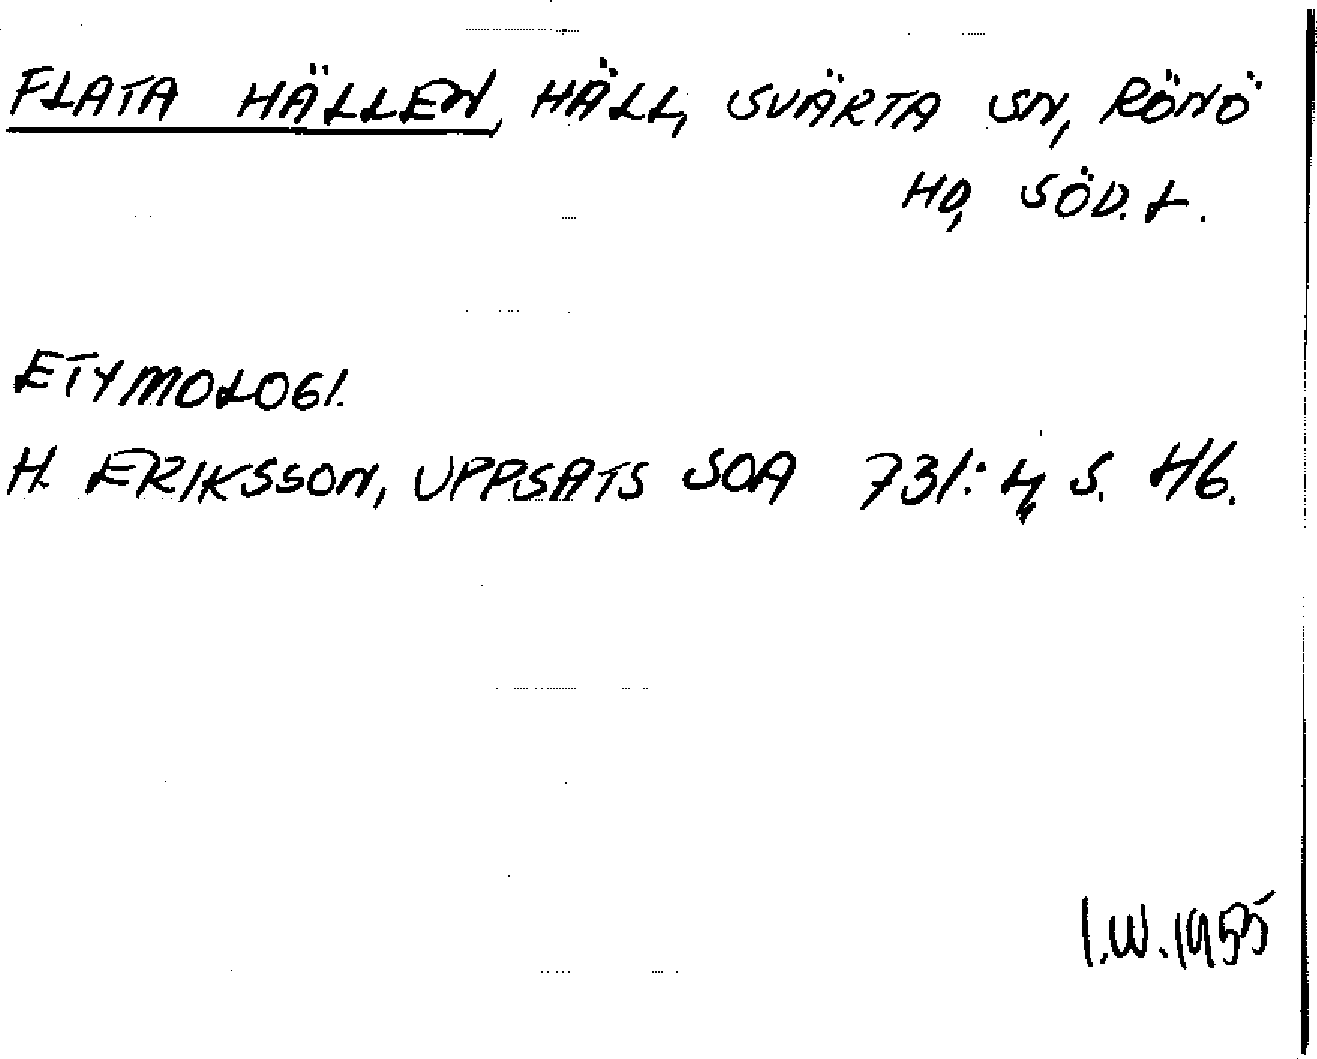 FLATA HÄLLEN, HÄLL, SVÄRTA SN, RÖNÖ
HD, SÖD.L.
ETYMOLOGI.
H. ERIKSSON, UPPSATS SOA 731:4, S. 46.
I.W. 1955